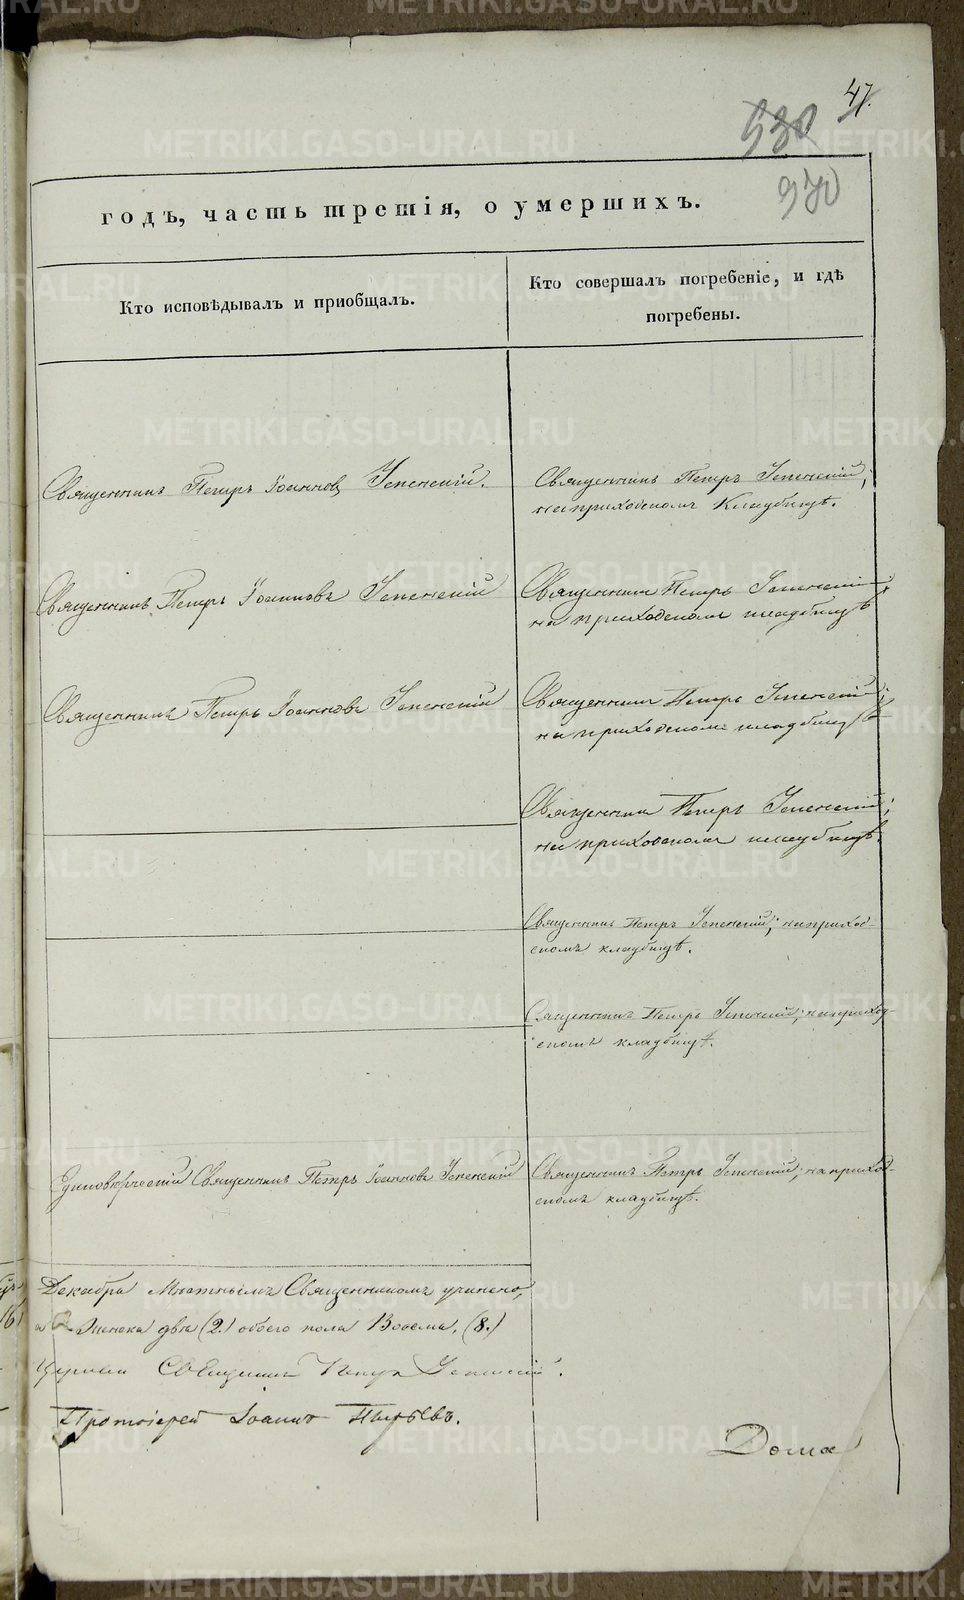 47.
930
970
годъ, часть третія, о умершихъ.
Кто исповѣдывалъ и приобщалъ.
Кто совершалъ погребеніе, и гдѣ
погребены.
Священникъ Петръ Іоанновъ Успенскій.
Священникъ Петръ Успенскій;
на приходскомъ Кладбищѣ.
Священникъ Петръ Іоанновъ Успенскій
Священникъ Петръ Успенскій
на приходскомъ кладбищѣ
Священникъ Петръ Іоанновъ Успенскій
Священникъ Петръ Успенскій;
на приходскомъ кладбищѣ
Священникъ Петръ Успенскій;
на приходскомъ кладбищѣ.
Священникъ Петръ Успенскій; на приход-
скомъ кладбищѣ.
Священникъ Петръ Успенскій; на приход-
скомъ кладбищѣ.
Единовѣрческій Священникъ Петръ Іоанновъ Успенскій
Священникъ Петръ Успенскій; на приход-
скомъ кладбищѣ.
Декабрѣ Мѣстнымъ Священникомъ учинено,
Женска два (2.) обоего пола Восемь. (8.)
Церкви Священникъ Петръ Успенскій.
Протоіерей Іоаннъ Пырьевъ.
Дома
METRIKI.GASO-URAL.RU